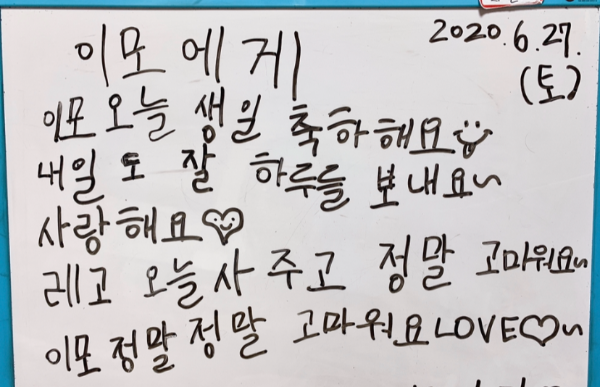 이모에게
2020.6.27.
(토)
이모 오늘 생일 축하해요
내일도 잘 하루를 보내요~
사랑해요♡
레고 오늘 사 주고 정말 고마워요~
이모 정말 정말 고마워요 LOVE♡~